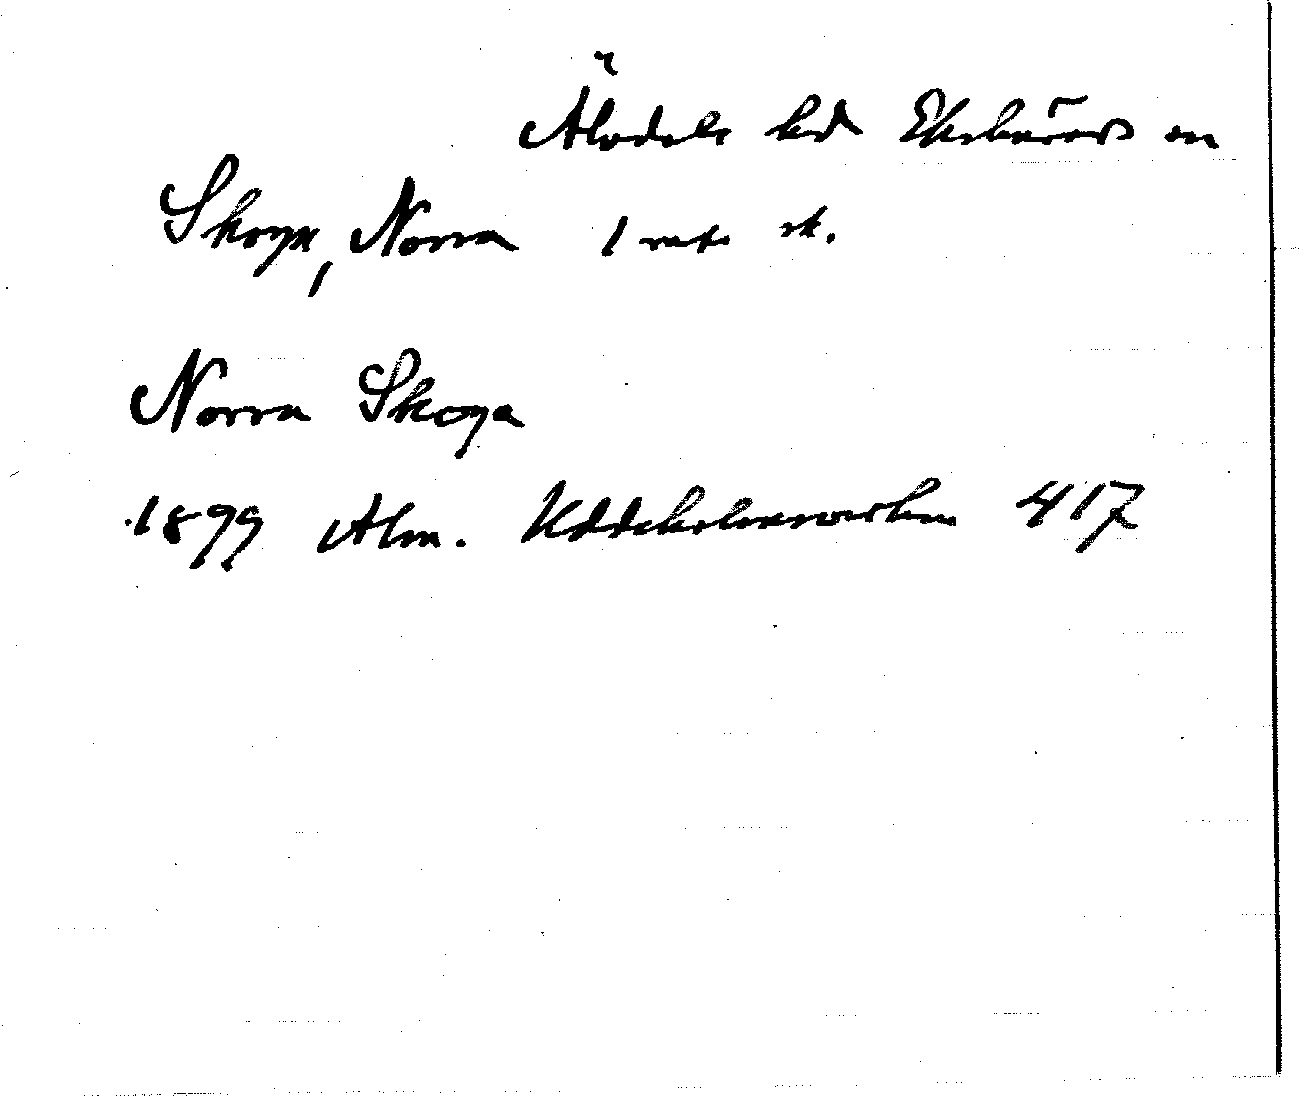 Älvdals hd Ekshärads sn
Skoga, Norra 1 mtl sk.
Norra Skoga
1899 Alm. Uddeholmsverken 417